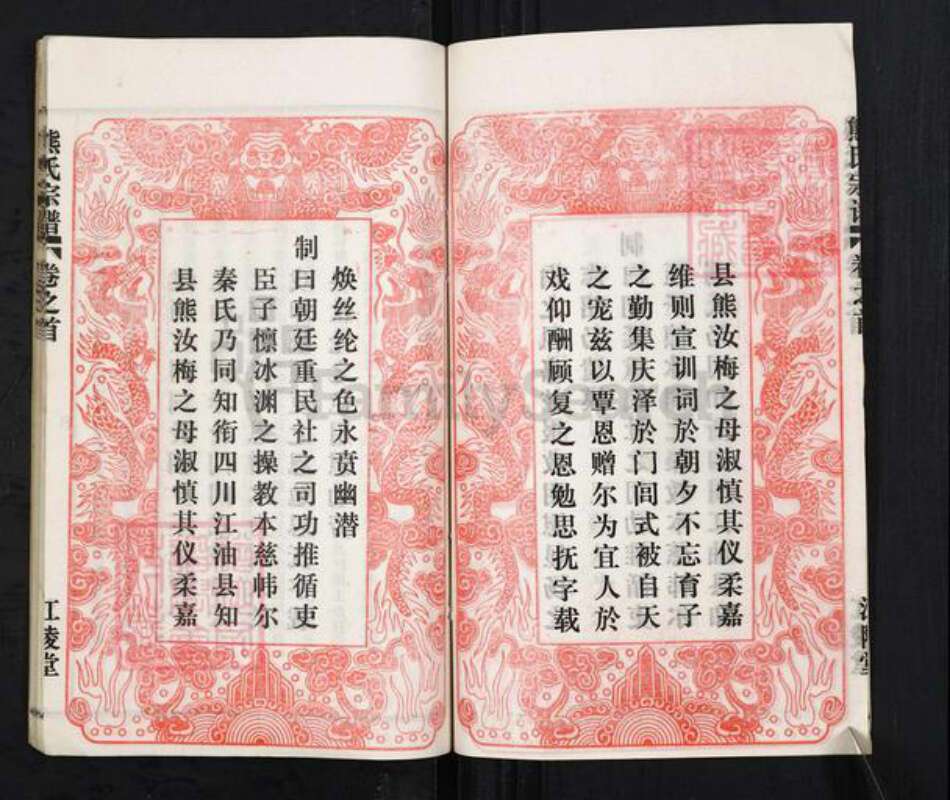 县熊汝梅之母淑慎其仪柔嘉
维则宣训词於朝夕不忘育子
之勤集庆泽於门闾式被自天
之宠兹以覃恩赠尔为宜人於
戏仰酬顾复之恩勉思抚字载
焕丝纶之色永贲幽潜
制曰朝廷重民社之司功推循吏
臣子懔冰渊之操教本慈帏尔
秦氏乃同知衔四川江油县知
县熊汝梅之母淑慎其仪柔嘉
熊氏宗谱
卷之首
江陵堂
FamilySearch